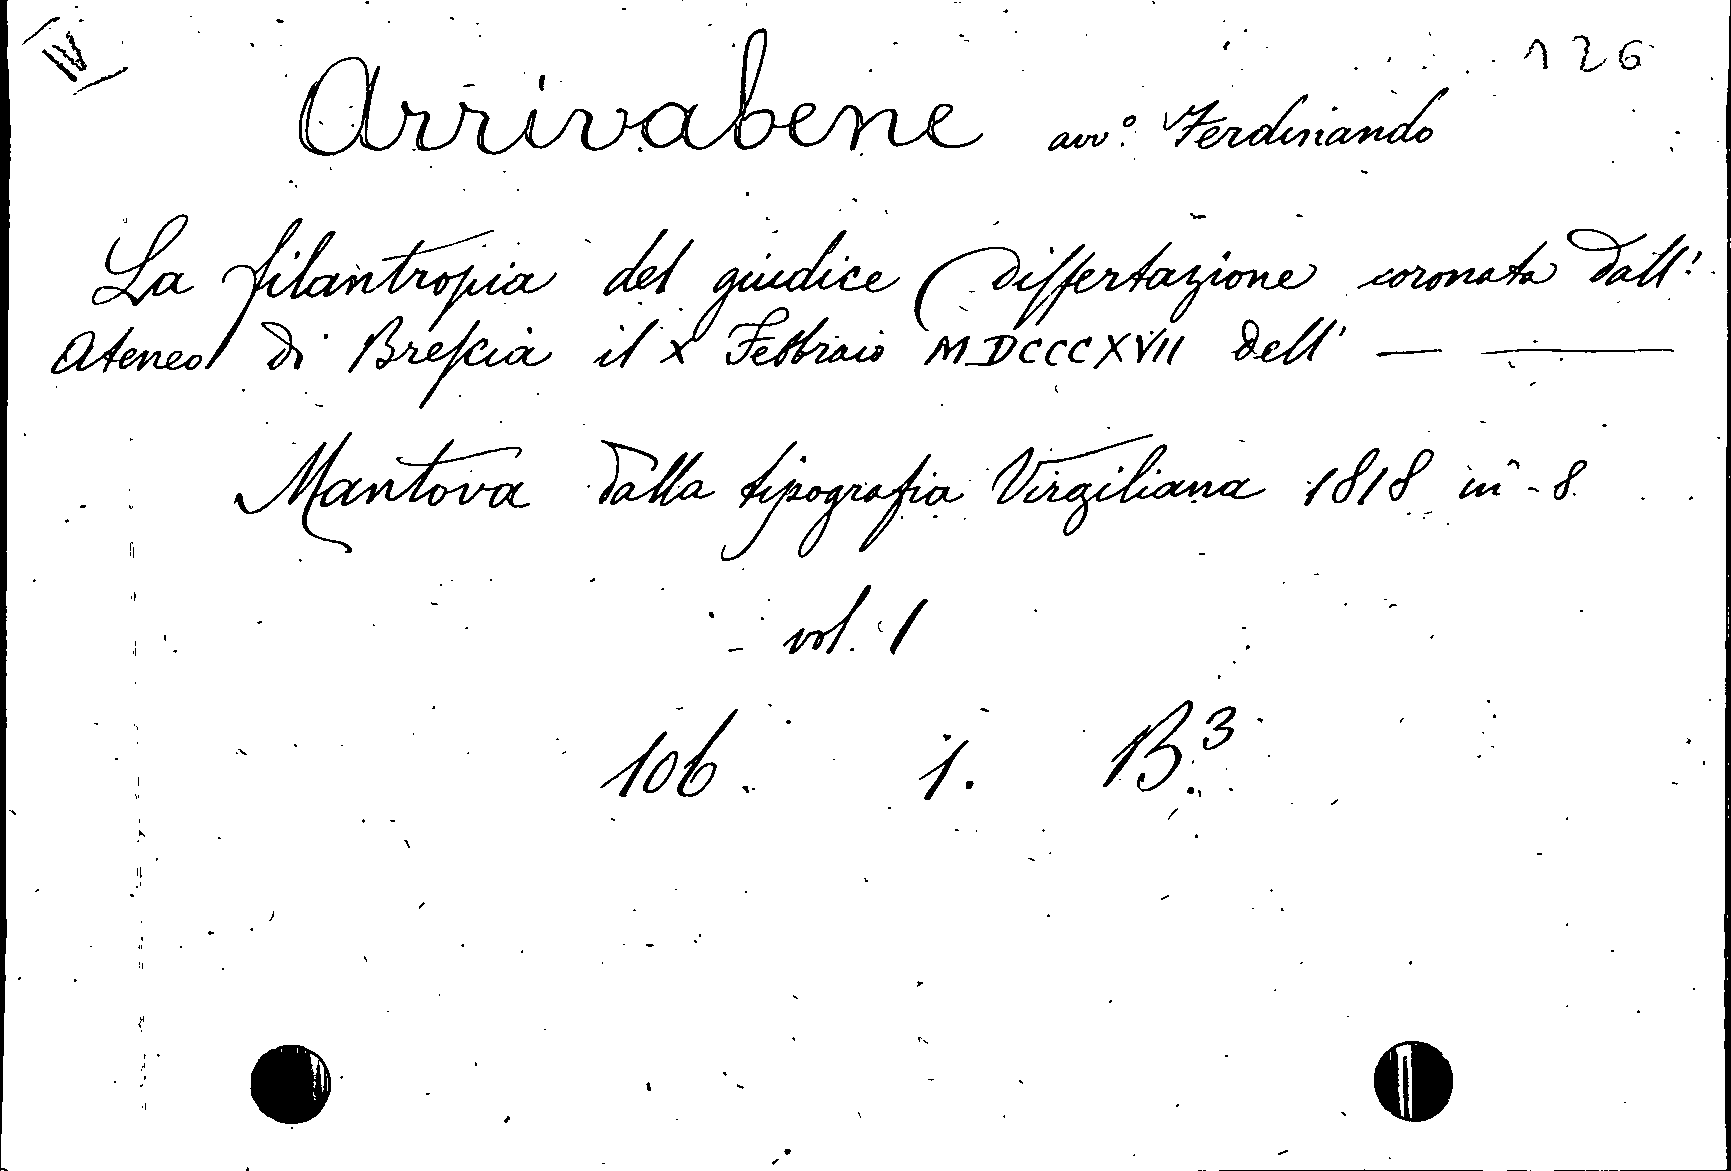 IV
126
Arrivabene avv.º Ferdinando
La filantropia del giudice Dissertazione coronata dall'
Ateneo di Brescia il X Febbraio MDCCCXVII dell' — ——
Mantova dalla tipografia Virgiliana 1818 in-8.
vol. 1
106. 1. B.3